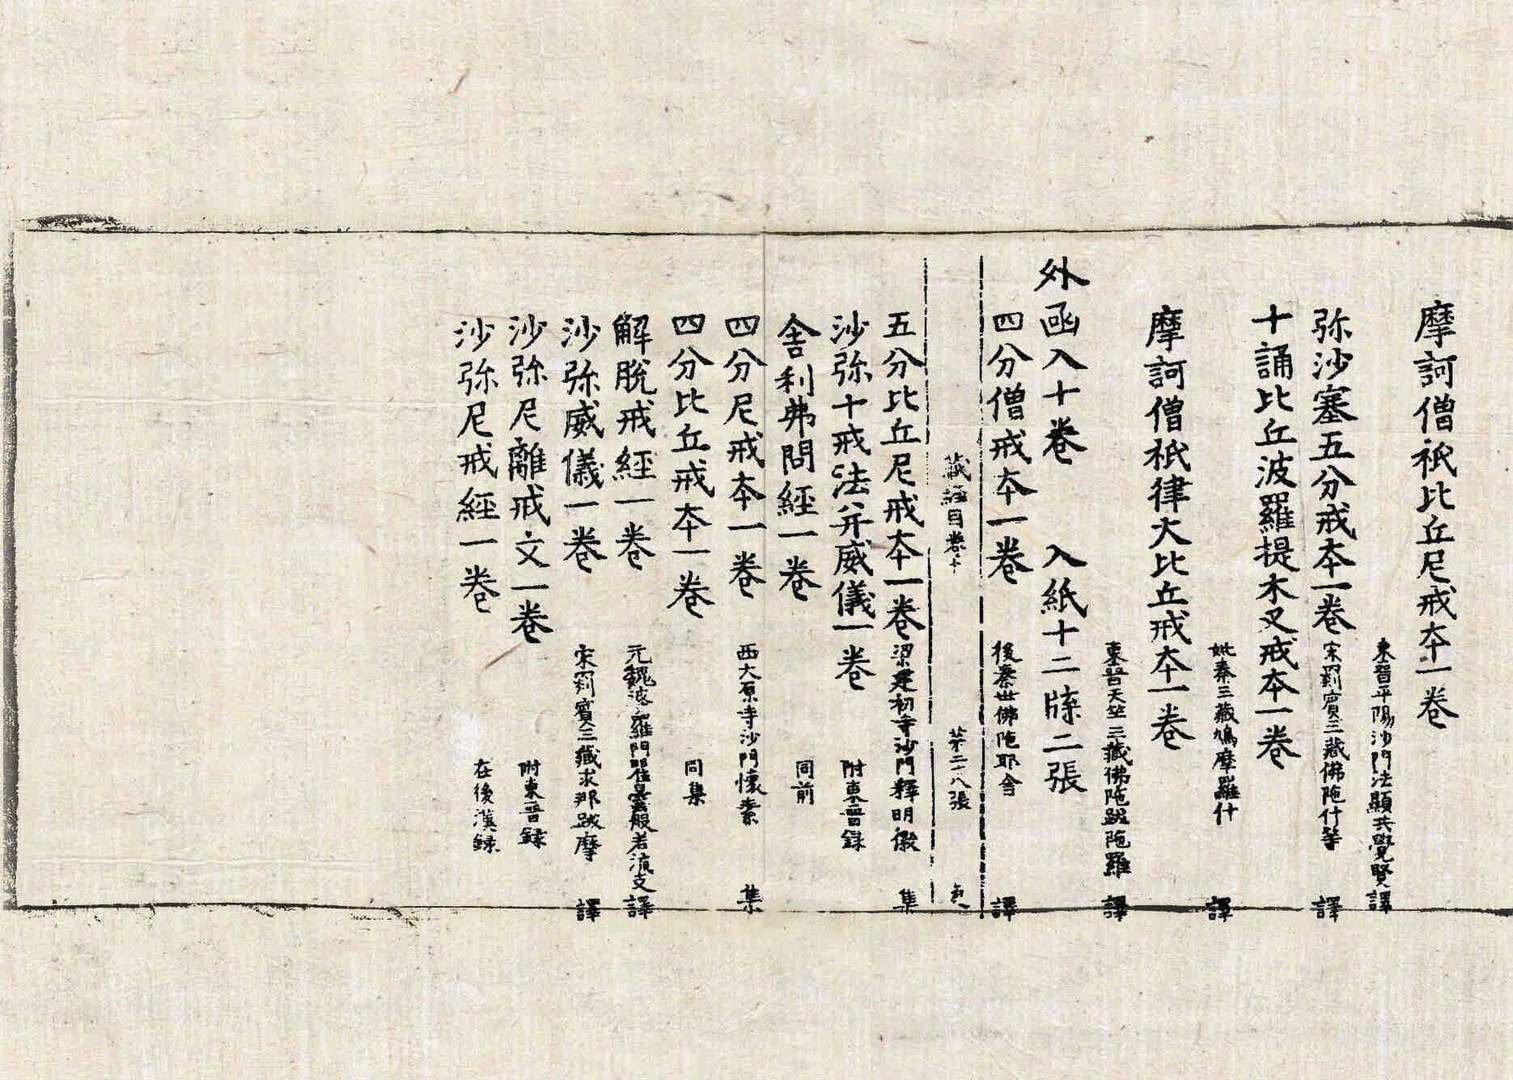 摩訶僧祇比丘尼戒夲一卷
東晉平陽沙門法顯共覺賢譯
弥沙塞五分戒夲一卷 宋罽賓三藏佛陁什等 譯
十誦比丘波羅提木叉戒夲一卷
姚秦三藏鳩摩羅什 譯
摩訶僧祇律大比丘戒夲一卷
東晉天竺三藏佛陁跋陁羅 譯
外函入十卷 入紙十二牒二張
四分僧戒夲一卷 後秦世佛陁耶舍 譯
藏經目卷 苐二十八張
五分比丘尼戒夲一卷 梁建初寺沙門釋明徽 集
沙弥十戒法并威儀一卷 附東晉録
舍利弗問經一卷 同前
四分尼戒夲一卷 西大原寺沙門懷素 集
四分比丘戒夲一卷 同集
解脫戒經一卷 元魏波羅門瞿曇般若流支 譯
沙弥威儀一卷 宋罽賓三藏求那跋摩 譯
沙弥尼離戒文一卷 附東晉録
沙弥尼戒經一卷 在後漢録